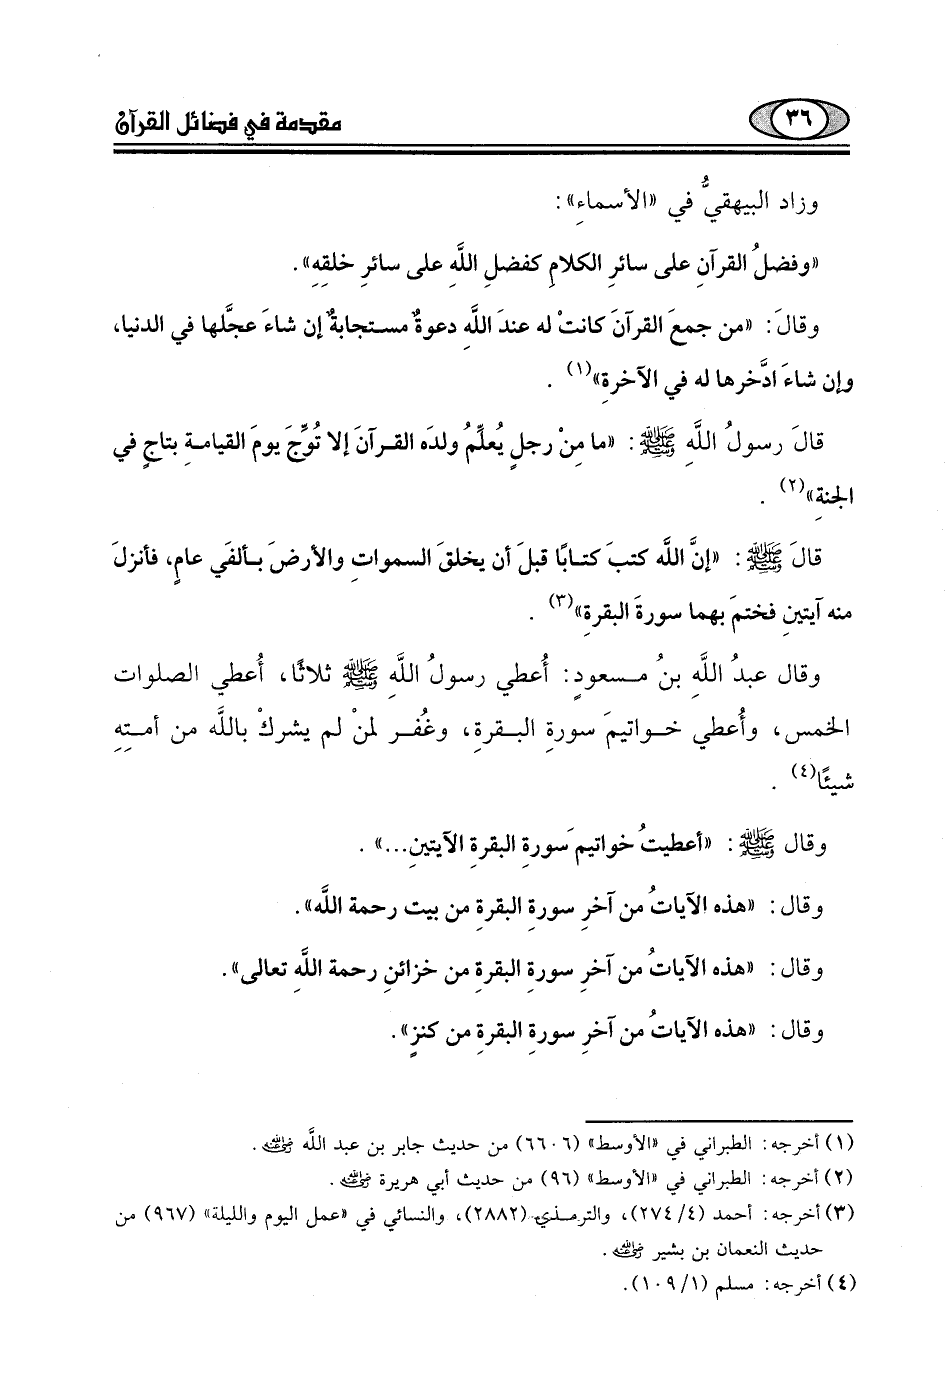 ٣٦
مقدمة في فضائل القرآن
وزاد البيهقيُّ في «الأسماءِ»:
«وفضلُ القرآنِ على سائرِ الكلامِ كفضلِ اللَّهِ على سائرِ خلقِهِ».
وقالَ: «من جمعَ القرآنَ كانتْ له عندَ اللَّهِ دعوةٌ مستجابةٌ إن شاءَ عجَّلها في الدنيا،
وإن شاءَ ادَّخرها له في الآخرةِ»(١) .
قالَ رسولُ اللَّهِ ﷺ: «ما مِنْ رجلٍ يُعلِّمُ ولدَه القرآنَ إلا تُوِّجَ يومَ القيامةِ بتاجٍ في
الجنةِ»(٢) .
قالَ ﷺ: «إنَّ اللَّه كتبَ كتابًا قبلَ أن يخلقَ السمواتِ والأرضَ بألفَي عامٍ، فأنزلَ
منه آيتينِ فختمَ بهما سورةَ البقرةِ»(٣) .
وقال عبدُ اللَّهِ بنُ مسعودٍ: أُعطي رسولُ اللَّهِ ﷺ ثلاثًا، أُعطي الصلوات
الخمس، وأُعطي خواتيمَ سورةِ البقرةِ، وغُفر لمنْ لم يشركْ باللَّه من أمتِهِ
شيئًا(٤) .
وقال ﷺ: «أعطيتُ خواتيمَ سورةِ البقرةِ الآيتينِ...» .
وقال: «هذه الآياتُ من آخرِ سورةِ البقرةِ من بيت رحمة اللَّه».
وقال: «هذه الآياتُ من آخرِ سورةِ البقرةِ من خزائنِ رحمة اللَّهِ تعالى».
وقال: «هذه الآياتُ من آخرِ سورةِ البقرةِ من كنزٍ».
(١) أخرجه: الطبراني في «الأوسط» (٦٦٠٦) من حديث جابر بن عبد اللَّه رضي الله عنه.
(٢) أخرجه: الطبراني في «الأوسط» (٩٦) من حديث أبي هريرة رضي الله عنه.
(٣) أخرجه: أحمد (٤/ ٢٧٤)، والترمذي (٢٨٨٢)، والنسائي في «عمل اليوم والليلة» (٩٦٧) من
حديث النعمان بن بشير رضي الله عنه.
(٤) أخرجه: مسلم (١/ ١٠٩).